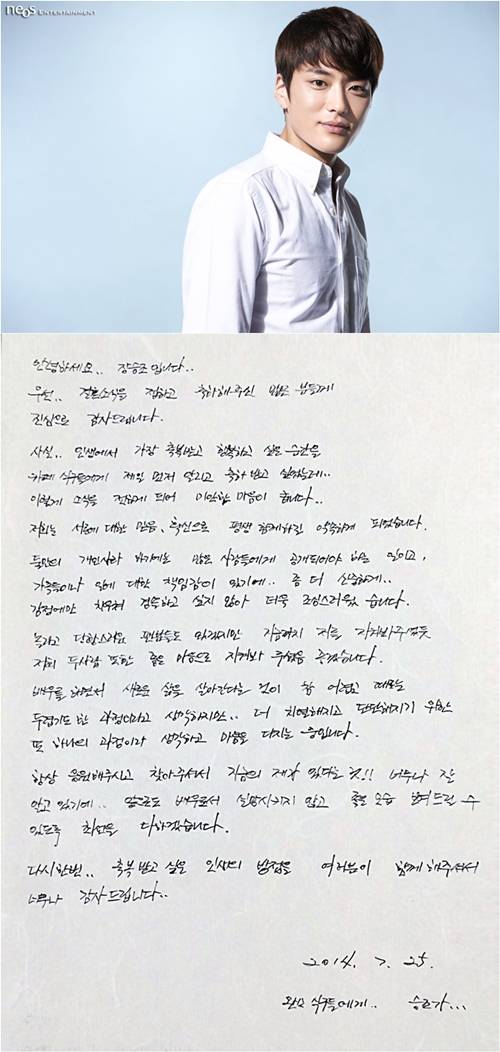 neos ENTERTAINMENT
안녕하세요.. 장승조입니다..
우선.. 결혼소식을 접하고 축하해주신 많은 분들께
진심으로 감사드립니다.
사실.. 인생에서 가장 축복받고 행복하고 싶은 순간을
카페 식구들에게 제일 먼저 알리고 축하 받고 싶었는데..
이렇게 소식을 전하게 되어 미안한 마음이 듭니다..
저희는 서로에 대한 믿음, 확신으로 평생 함께하길 약속하게 되었습니다.
둘만의 개인사라 하기에는 많은 사람들에게 공개되어야 하는 일이고,
가족들이나 일에 대한 책임감이 있기에.. 좀 더 신중하게..
감정에만 치우쳐 결속하고 싶지 않아 더욱 조심스러웠습니다.
놀라고 당황스러운 팬분들도 있겠지만 지금까지 저를 지켜봐주셨듯
저희 두사람 또한 좋은 마음으로 지켜봐 주셨음 좋겠습니다.
배우를 하면서 새로운 삶을 살아간다는 것이 참 어렵고 때로는
두렵기도 한 과정이라고 생각하지만.. 더 치열해지고 단단해지기 위한
또 하나의 과정이라 생각하고 마음을 다지는 중입니다.
항상 응원해주시고 찾아주셔서 지금의 제가 있다는 것!! 너무나 잘
알고 있기에.. 앞으로도 배우로서 실망시키지 않고 좋은 모습 보여드릴 수
있도록 최선을 다하겠습니다.
다시한번.. 축복 받고 싶은 인생의 방점을 여러분이 함께 해주셔서
너무나 감사드립니다..
2014. 7. 25.
완소 식구들에게.. 승조가...